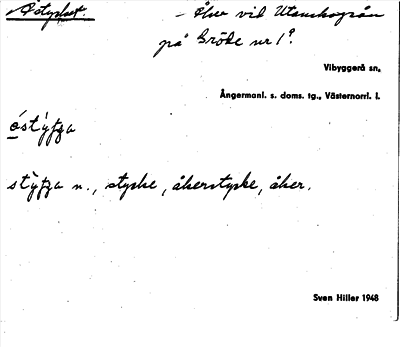 Östycket. – Åker vid Utanskogsån
på Bröte nr 1?.
Vibyggerå sn.
Ångermanl. s. doms. tg., Västernorrl. l.
stycke, åkerstycke, åker.
Sven Hiller 1948